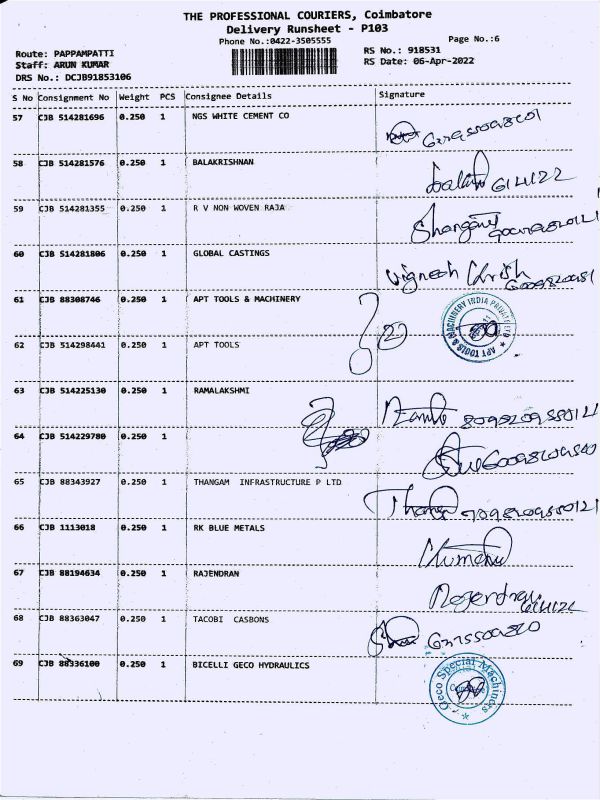 THE PROFESSIONAL COURIERS, Coimbatore
Delivery Runsheet - P103
Phone No.:0422-3505555 Page No.:6
Route: PAPPAMPATTI RS No.: 918531
Staff: ARUN KUMAR RS Date: 06-Apr-2022
DRS No.: DCJB91853106
S No Consignment No Weight PCS Consignee Details Signature
57 CJB 514281696 0.250 1 NGS WHITE CEMENT CO
58 CJB 514281576 0.250 1 BALAKRISHNAN
6/4/22
59 CJB 514281355 0.250 1 R V NON WOVEN RAJA
60 CJB 514281806 0.250 1 GLOBAL CASTINGS
Vignesh
61 CJB 88308746 0.250 1 APT TOOLS & MACHINERY
APT TOOLS & MACHINERY INDIA PRIVATE LTD
62 CJB 514298441 0.250 1 APT TOOLS
63 CJB 514225130 0.250 1 RAMALAKSHMI
64 CJB 514229780 0.250 1
65 CJB 88343927 0.250 1 THANGAM INFRASTRUCTURE P LTD
66 CJB 1113018 0.250 1 RK BLUE METALS
67 CJB 88194634 0.250 1 RAJENDRAN
6/4/22
68 CJB 88363047 0.250 1 TACOBI CASBONS
69 CJB 88336100 0.250 1 BICELLI GECO HYDRAULICS
Geco Special Machiners